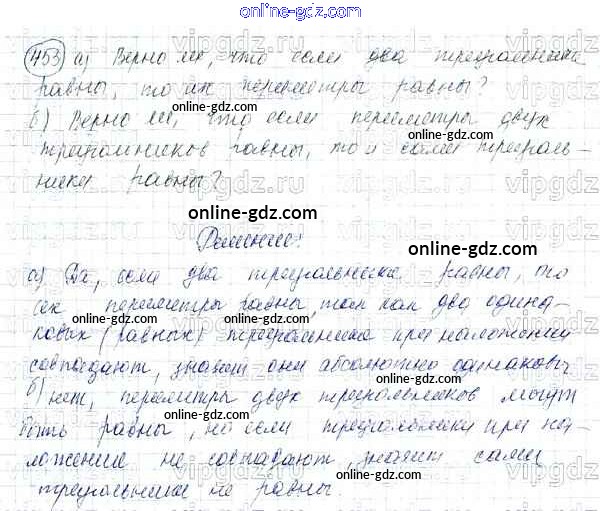 online-gdz.com
453 а) Верно ли, что если два треугольника
равны, то их периметры равны?
online-gdz.com
vipgdz.ru
б) Верно ли, что если периметры двух
треугольников равны, то и сами треуголь-
ники равны?
online-gdz.com
vipgdz.ru
online-gdz.com
Решение:
online-gdz.com
а) Да, если два треугольника равны, то
их периметры равны, так как два одина-
online-gdz.com
ковых (равных) треугольника при наложении
совпадают, значит они абсолютно одинаковы
online-gdz.com
б) нет, периметры двух треугольников могут
online-gdz.com
быть равны, но если треугольники при на-
ложение не совпадают, значит сами
online-gdz.com
треугольники не равны.
online-gdz.com